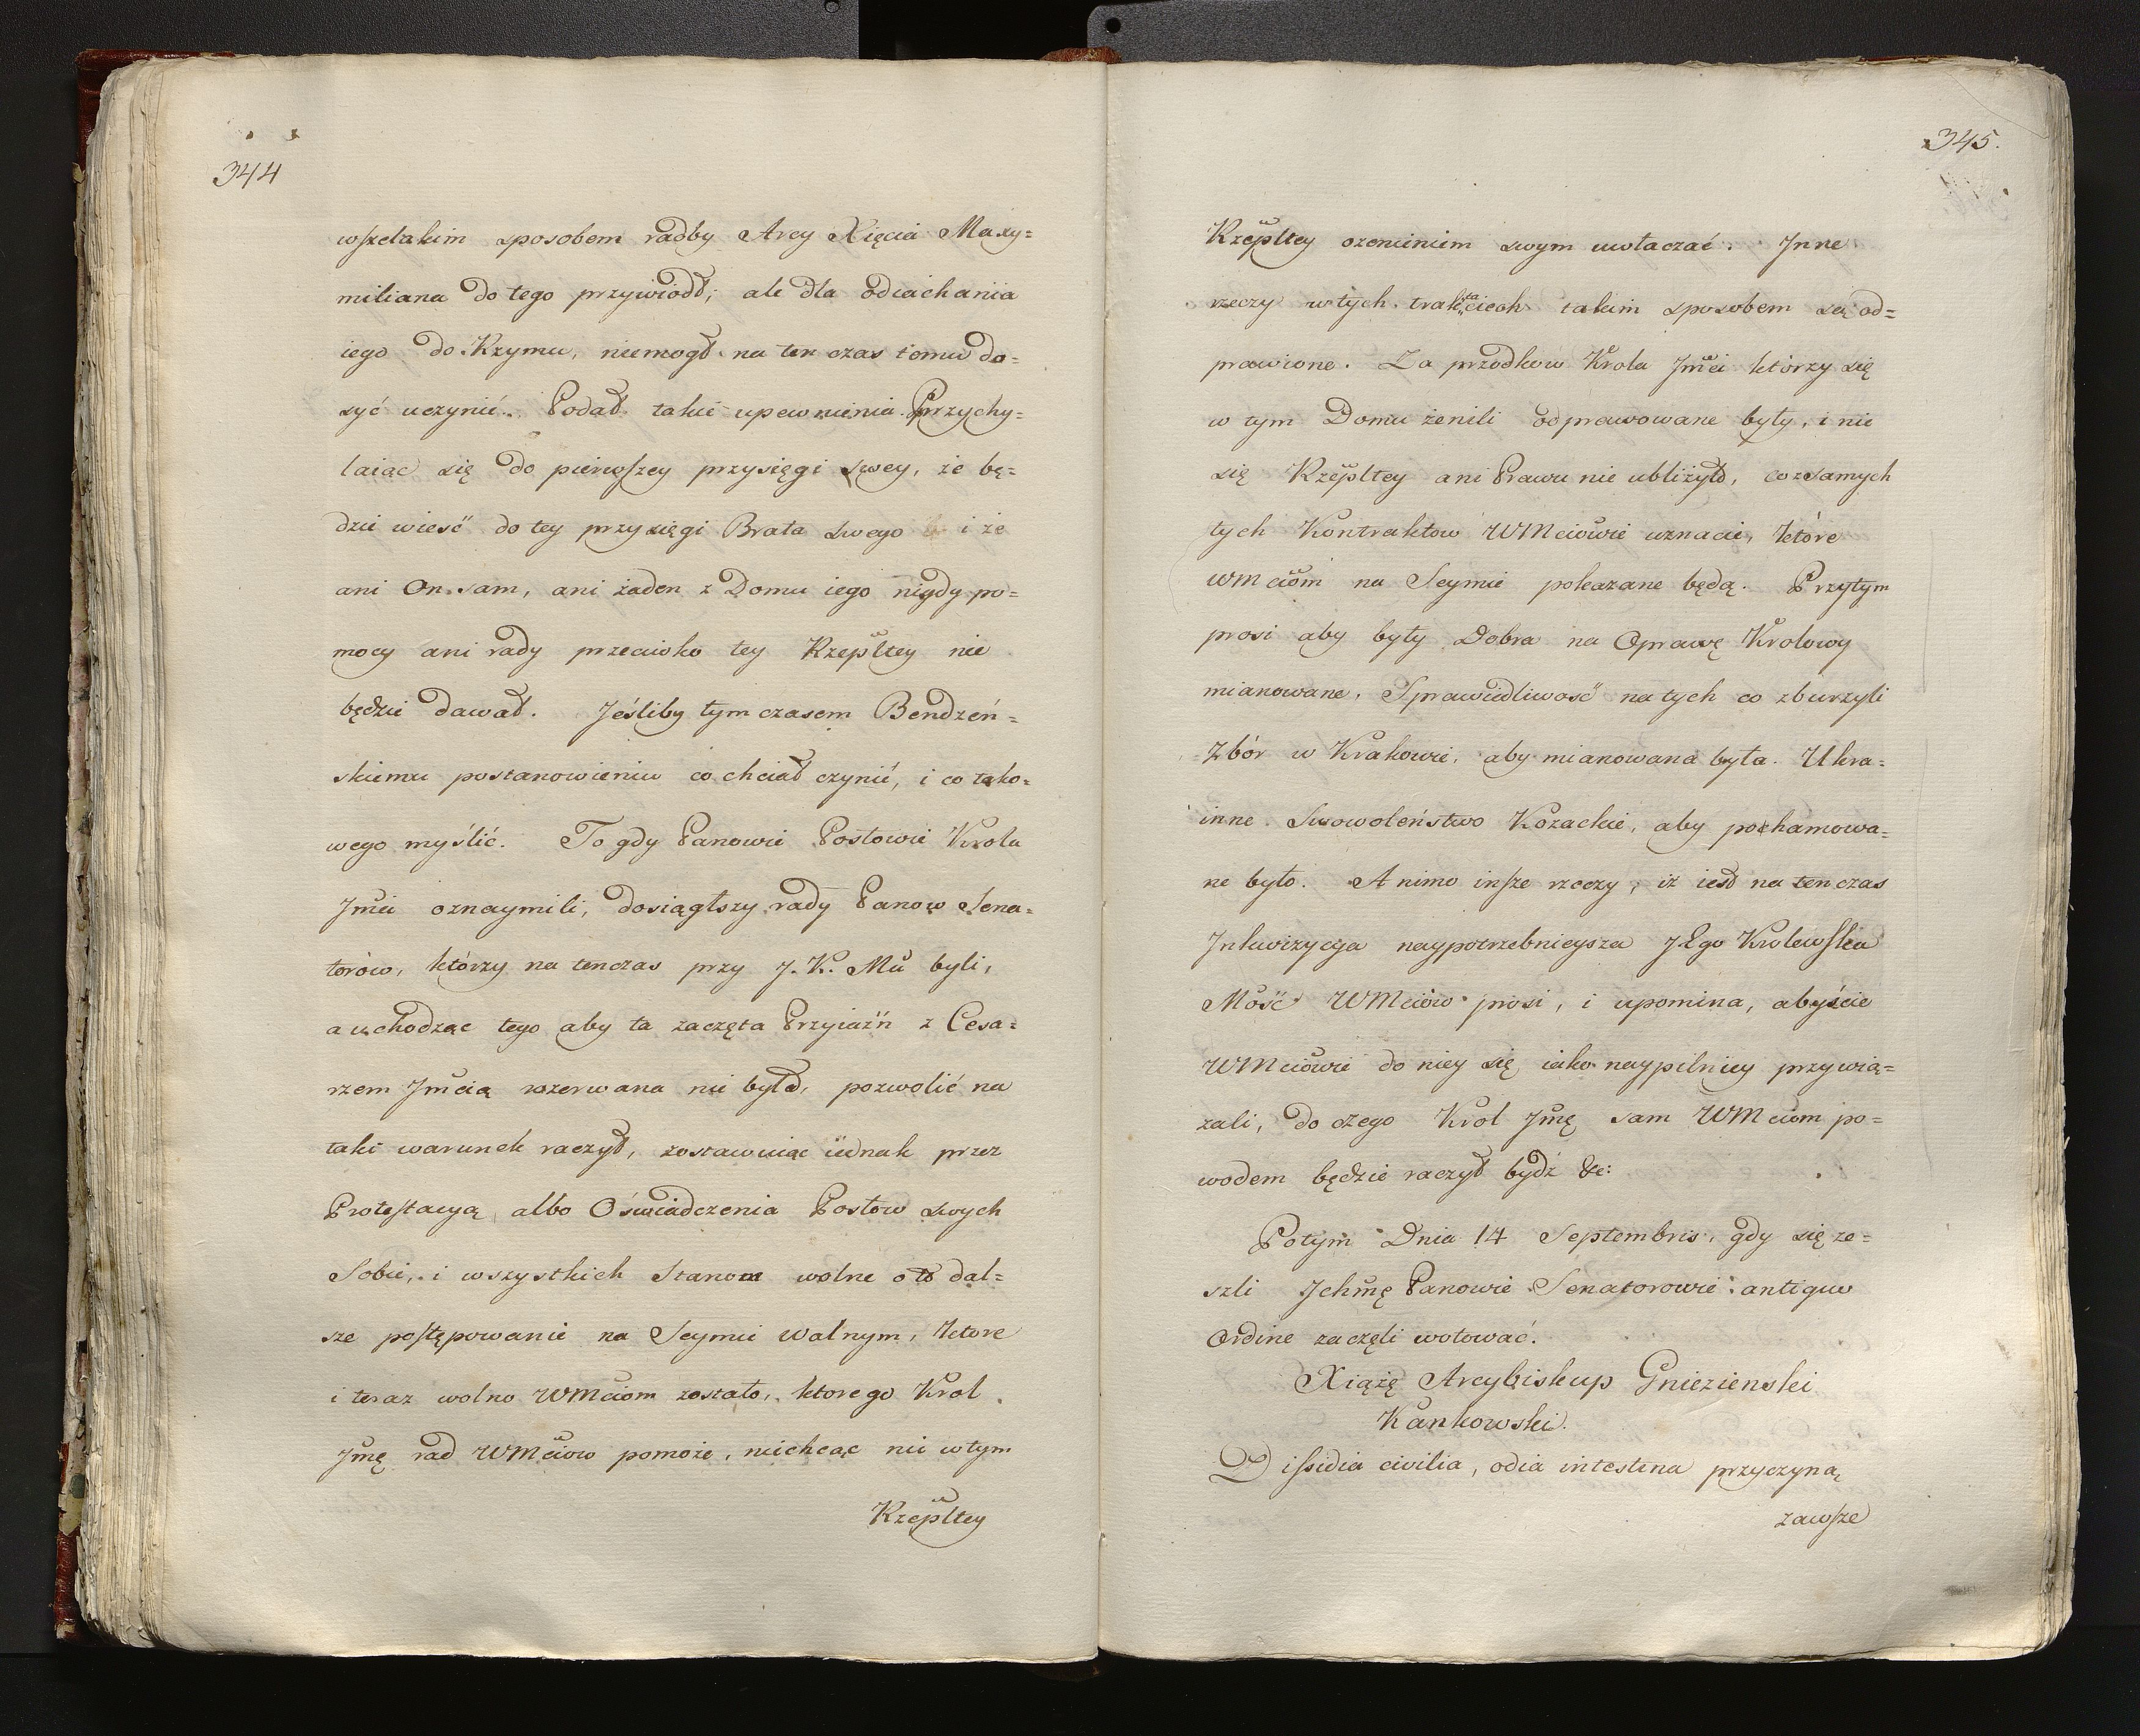 344
wszelakim sposobem radby Arcy Xięcia Maxy=
miliana do tego przywiodł; ale dla odiachania
iego do Krymu, niemogł na ten czas temu do=
syć uczynić. Podał takie upewnienia Przychy=
laiąc się do pierwszey przysięgi swey, że bę=
dzie wieść do tey przysięgi Brata swego i że
ani On sam, ani żaden z Domu iego nigdy po=
mocy ani rady przeciwko tey Rzepltey nie
będzie dawał. Jeśliby tym czasem Bendzeń=
skiemu postanowieniu co chciał czynić, i co tako=
wego myślić. To gdy Panowie Posłowie Krola
Jmći oznaymili, dosiągłszy rady Panow Sena=
torów, którzy na tenczas przy J. K. Mći byli,
a uchodząc tego aby ta zaczęta Przyiaźń z Cesa=
rzem Jmcią rozerwana nie była, pozwolić na
taki warunek raczył, zostawuiąc iednak przez
Protestacyą albo Oświadczenia Posłow swych
Sobie, i wszystkich Stanom wolne o to dal=
sze postępowanie na Seymie walnym, ktore
i teraz wolno WMciom zostało, ktorego Krol
Jmę rad WMciow pomoże, niechcąc nic w tym
Rzepltey
345.
Rzepltey ozenieniem swym uwłaczać. Inne
rzeczy w tych traktaciech takim sposobem są od=
prawione. Za przodkow Krola Jmći którzy się
w tym Domu żenili odprawowane były, i nic
się Rzepltey ani Prawu nie ubliżyło, co z samych
tych Kontraktow WMciowie uznacie, które
WMciom na Seymie pokazane będą. Przytym
prosi aby były Dobra na Oprawę Krolowy
mianowane, Sprawiedliwość na tych co zburzyli
Zbór w Krakowie, aby mianowana była. Ukra=
inne Swowoleństwo Kozackie, aby pohamowa=
ne było. A nimo insze rzeczy, iż iest na tenczas
Inkwizycya naypotrzebnieysza JEgo Krolewska
Mość WMciow prosi, i upomina, abyście
WMciowie do niey się iako naypilniey przywią=
zali, do czego Krol Jmę sam WMciom po=
wodem będzie raczył bydź &c:
Potym Dnia 14 Septembris, gdy się ze=
szli Ichmę Panowie Senatorowie antiquo
Ordine zaczęli wotować.
Xiążę Arcybiskup Gniezienski
Karnkowski.
Dissidia civilia, odia intestina przyczyną
zawsze